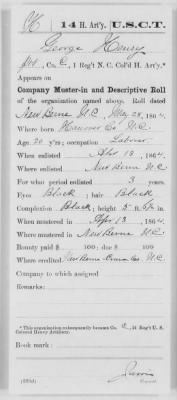 H | 14 H. Art'y. | U.S.C.T.
George Henry
Pvt, Co. C, 1 Reg't N. C. Col'd H. Art'y.*
Appears on
Company Muster-in and Descriptive Roll
of the organization named above. Roll dated
New Berne N.C. May 28, 1864.
Where born Hanover Co N.C.
Age 20 y'rs; occupation Labour
When enlisted Apr 13, 1864.
Where enlisted New Berne N.C.
For what period enlisted 3 years.
Eyes Black; hair Black
Complexion Black; height 5 ft. in.
When mustered in Apr 13, 1864.
Where mustered in New Berne N.C.
Bounty paid $ 100; due $ 100
Where credited New Berne Craven Co. N.C.
Company to which assigned
Remarks:
*This organization subsequently became Co. C, 14 Reg't U. S. Colored Heavy Artillery.
Book mark:
Copyist.